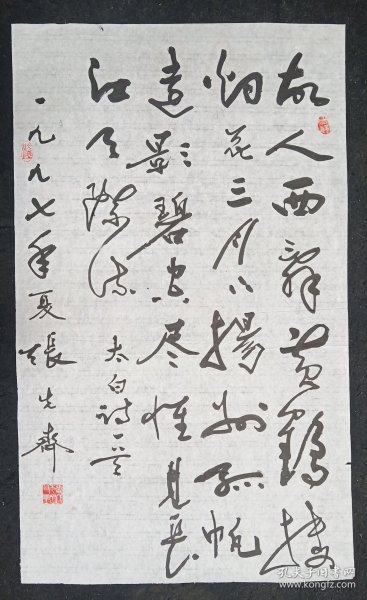 故人西辭黄鶴楼
烟花三月下揚州孤帆
遠影碧空尽惟見長
江天際流 太白詩一首
一九九七年夏 張先齊
孔夫子旧书网